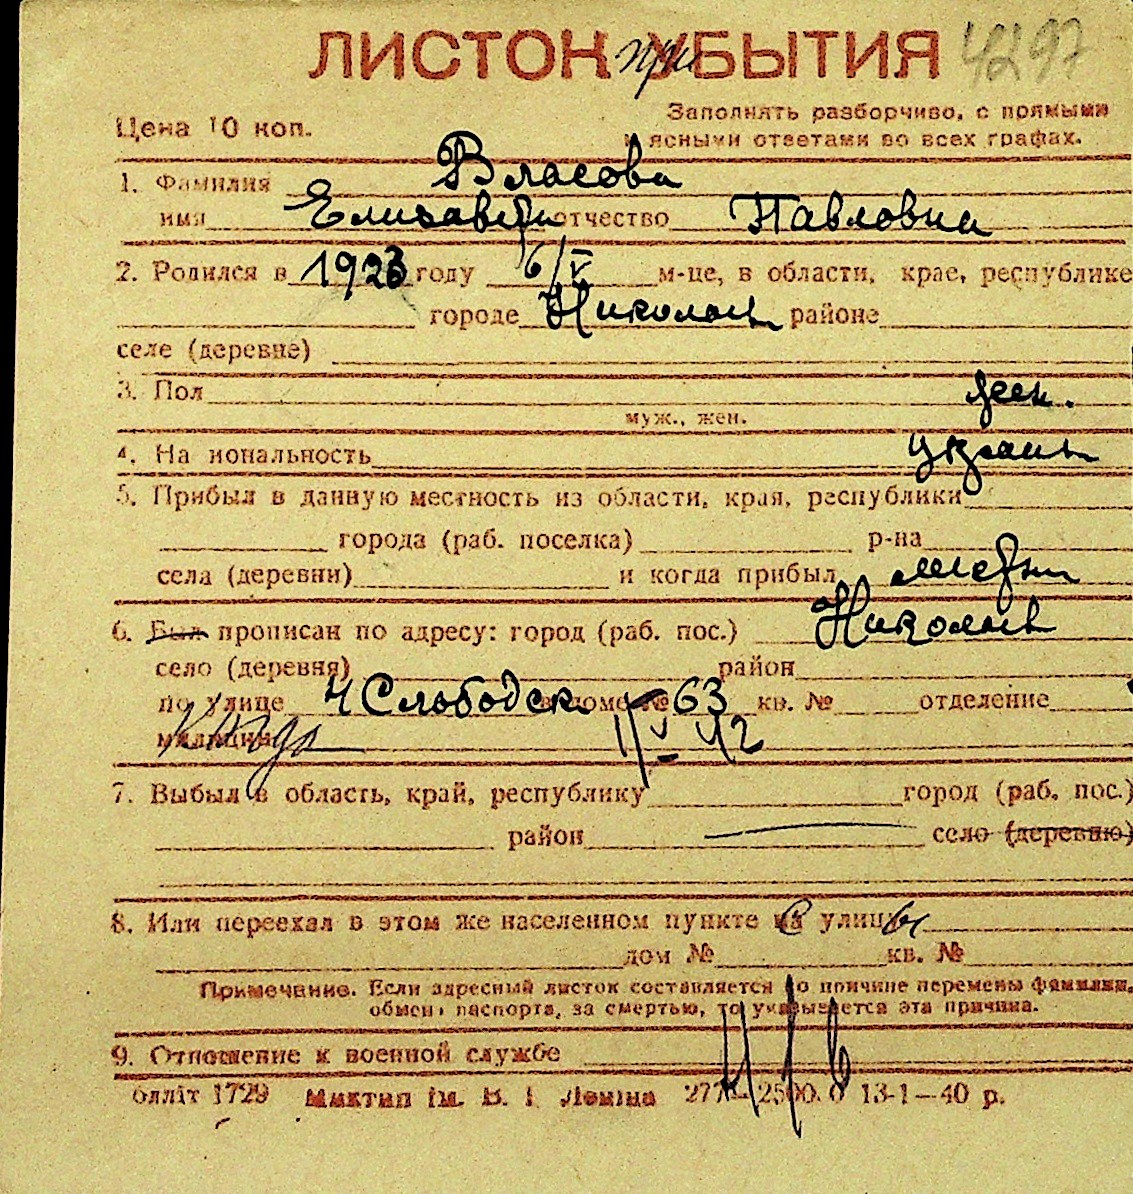 ЛИСТОК при УБЫТИЯ 4297
Цена 10 коп.
Заполнять разборчиво, с прямыми
и ясными ответами во всех графах.
1. Фамилия Власова
имя Елизавета отчество Павловна
2. Родился в 1923 году 6/V м-це, в области, крае, республике
городе Николаев районе
селе (деревне)
3. Пол жен.
муж., жен.
4. Национальность украин
5. Прибыл в данную местность из области, края, республики
города (раб. поселка) р-на
села (деревни) и когда прибыл
6. Был прописан по адресу: город (раб. пос.) Николаев
село (деревня) район
по улице 4 Слободск в доме № 63 кв. № отделение
милиции когда 1/V 42
7. Выбыл в область, край, республику город (раб. пос.)
район село (деревню)
8. Или переехал в этом же населенном пункте с улицы
дом № кв. №
Примечание. Если адресный листок составляется по причине перемены фамилии,
обмена паспорта, за смертью, то указывается эта причина.
9. Отношение к военной службе
блліт 1729 Миктип ім. В. І. Леніна 277—2500.0 13-1—40 р.